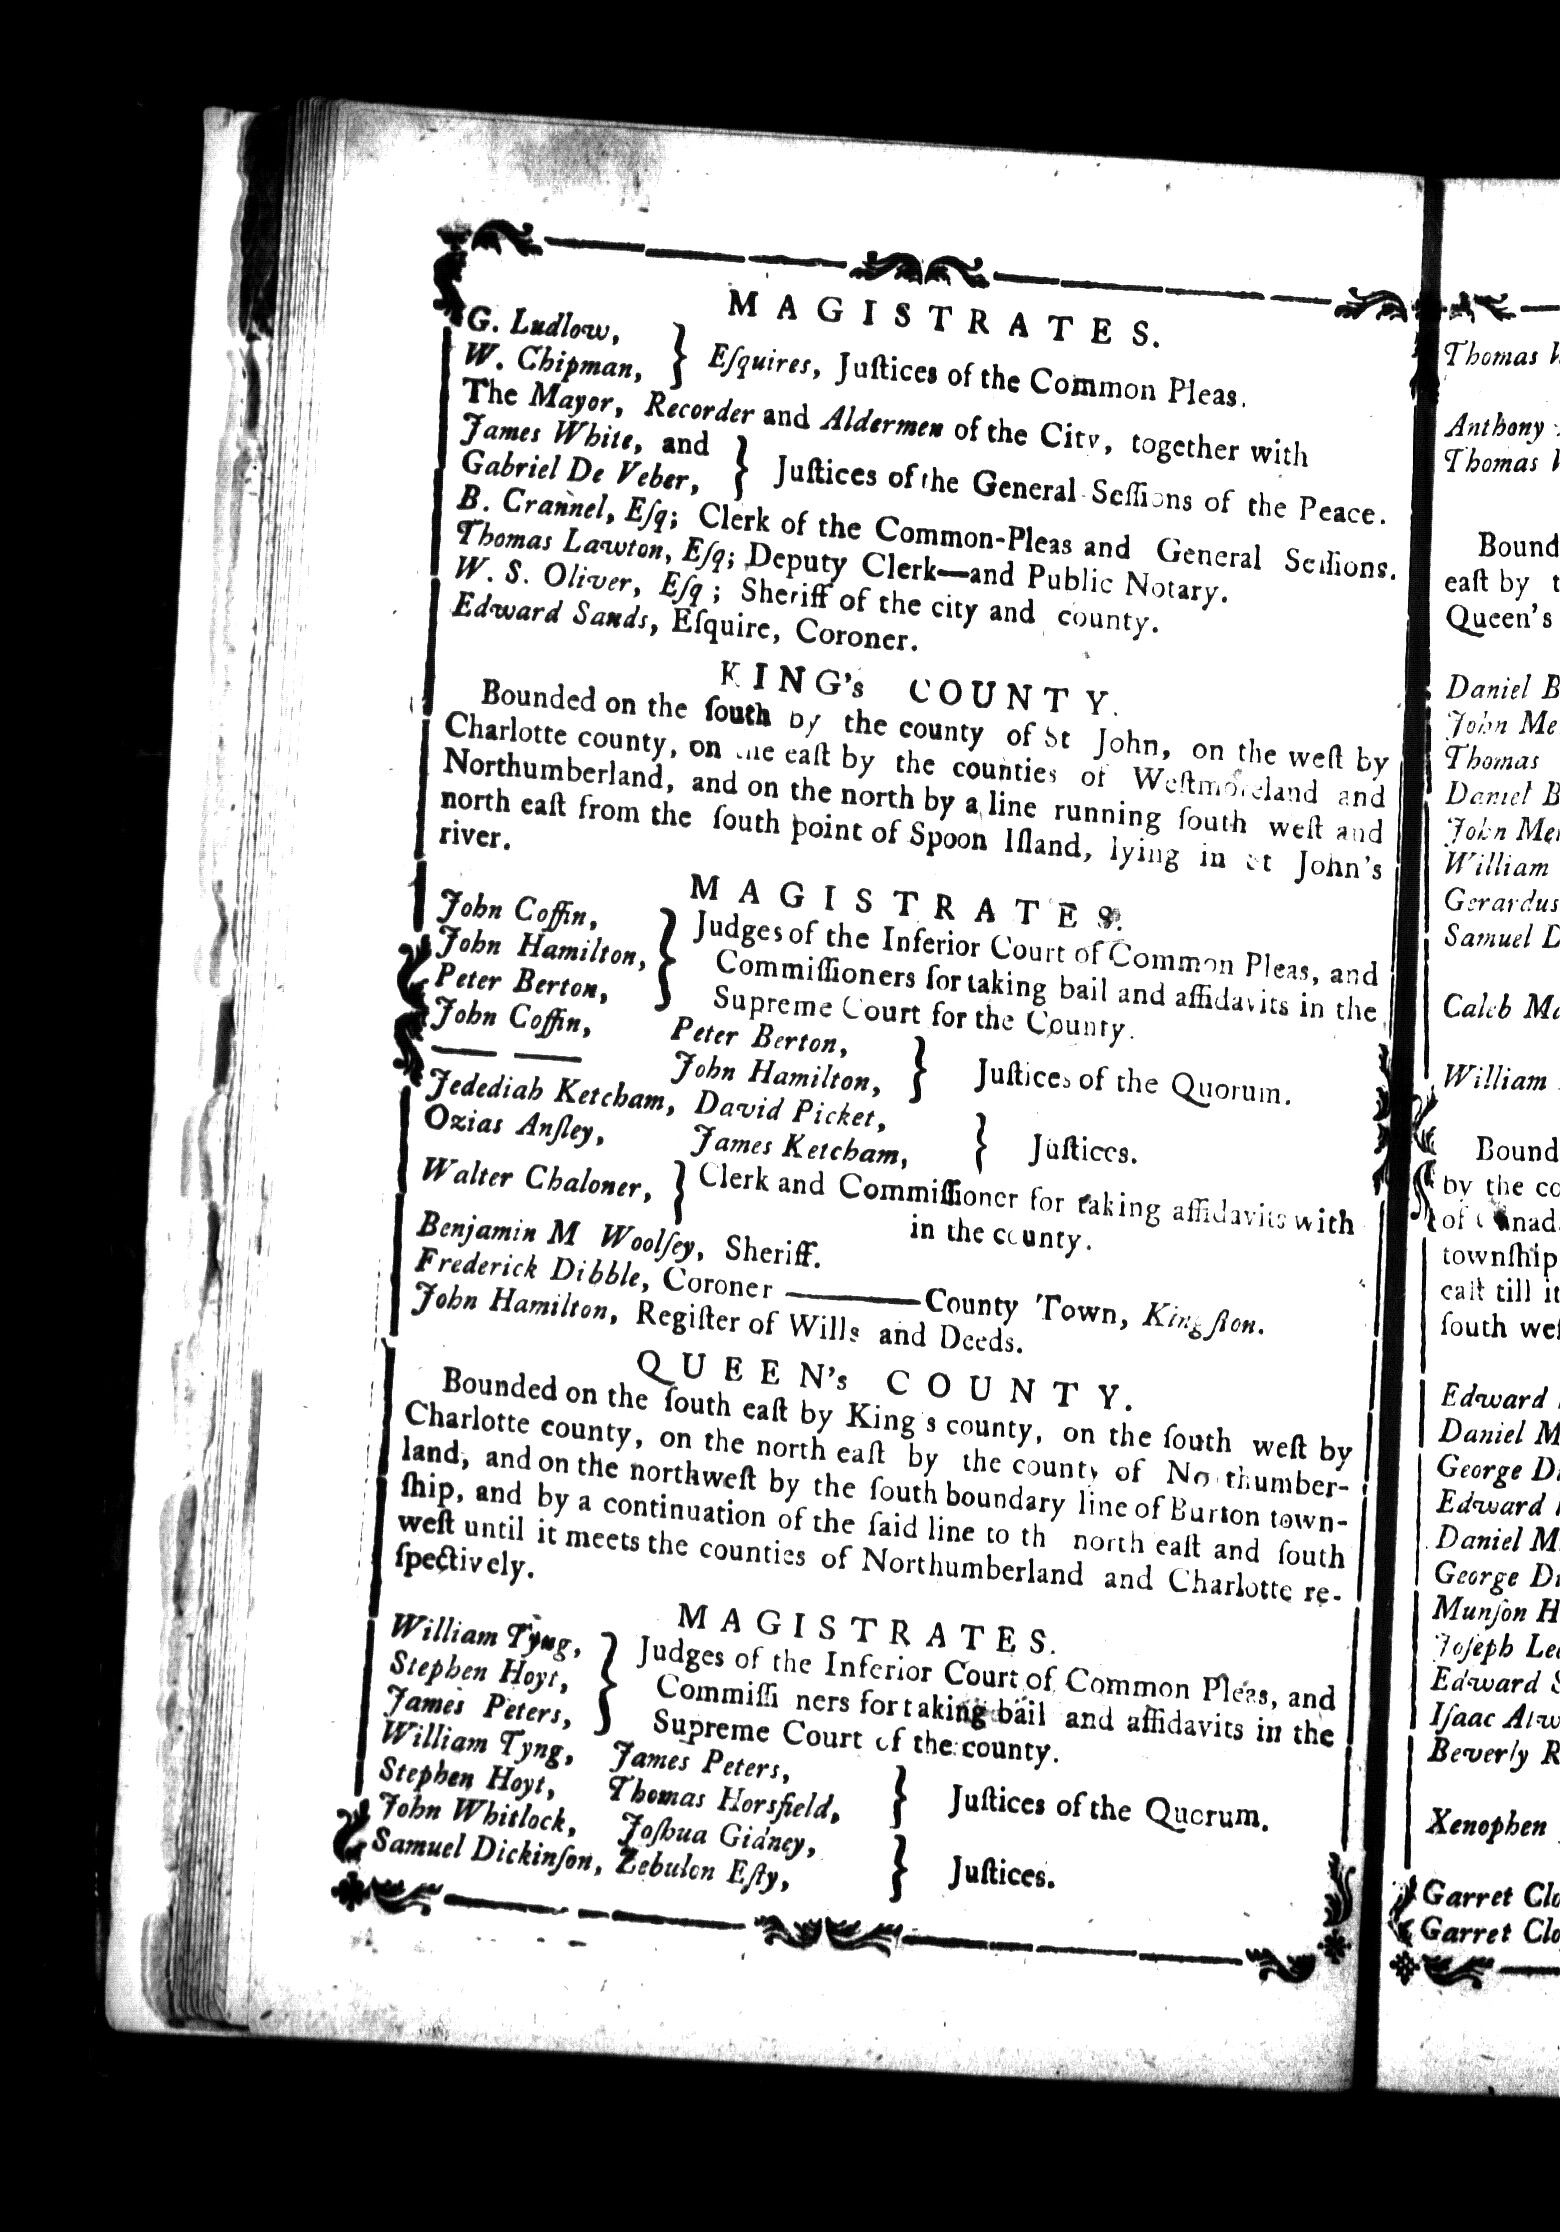 MAGISTRATES.
G. Ludlow,
W. Chipman, } Eſquires, Juſtices of the Common Pleas.
The Mayor, Recorder and Aldermen of the City, together with
James White, and
Gabriel De Veber, } Juſtices of the General Seſſions of the Peace.
B. Crannel, Eſq; Clerk of the Common-Pleas and General Seſſions.
Thomas Lawton, Eſq; Deputy Clerk—and Public Notary.
W. S. Oliver, Eſq; Sheriff of the city and county.
Edward Sands, Eſquire, Coroner.
KING's COUNTY.
Bounded on the ſouth by the county of St John, on the weſt by
Charlotte county, on the eaſt by the counties of Weſtmoreland and
Northumberland, and on the north by a line running ſouth weſt and
north eaſt from the ſouth point of Spoon Iſland, lying in St John's
river.
MAGISTRATES.
John Coffin,
John Hamilton,
Peter Berton, } Judges of the Inferior Court of Common Pleas, and
Commiſſioners for taking bail and affidavits in the
Supreme Court for the County.
John Coffin, Peter Berton,
—— —— John Hamilton, } Juſtices of the Quorum.
Jedediah Ketcham, David Picket,
Ozias Anſley, James Ketcham, } Juſtices.
Walter Chaloner, } Clerk and Commiſſioner for taking affidavits with
in the county.
Benjamin M Woolſey, Sheriff.
Frederick Dibble, Coroner ——— County Town, Kingſton.
John Hamilton, Regiſter of Wills and Deeds.
QUEEN's COUNTY.
Bounded on the ſouth eaſt by King s county, on the ſouth weſt by
Charlotte county, on the north eaſt by the county of Northumber-
land, and on the northweſt by the ſouth boundary line of Burton town-
ſhip, and by a continuation of the ſaid line to th north eaſt and ſouth
weſt until it meets the counties of Northumberland and Charlotte re-
ſpectively.
MAGISTRATES.
William Tyng,
Stephen Hoyt,
James Peters, } Judges of the Inferior Court of Common Pleas, and
Commiſſi ners for taking bail and affidavits in the
Supreme Court of the county.
William Tyng, James Peters,
Stephen Hoyt, Thomas Horsfield, } Juſtices of the Quorum.
John Whitlock, Joſhua Gidney,
Samuel Dickinſon, Zebulon Eſty, } Juſtices.
Thomas
Anthony
Thomas
Bound
eaſt by
Queen's
Daniel B
John Me
Thomas
Daniel B
John Me
William
Gerardus
Samuel D
Caleb
William
Bound
by the co
of
townſhip
till it
ſouth weſ
Edward
Daniel M
George D
Edward
Daniel M
George D
Munſon H
Joſeph Le
Edward S
Iſaac
Beverly R
Xenophen
Garret Clo
Garret Clo